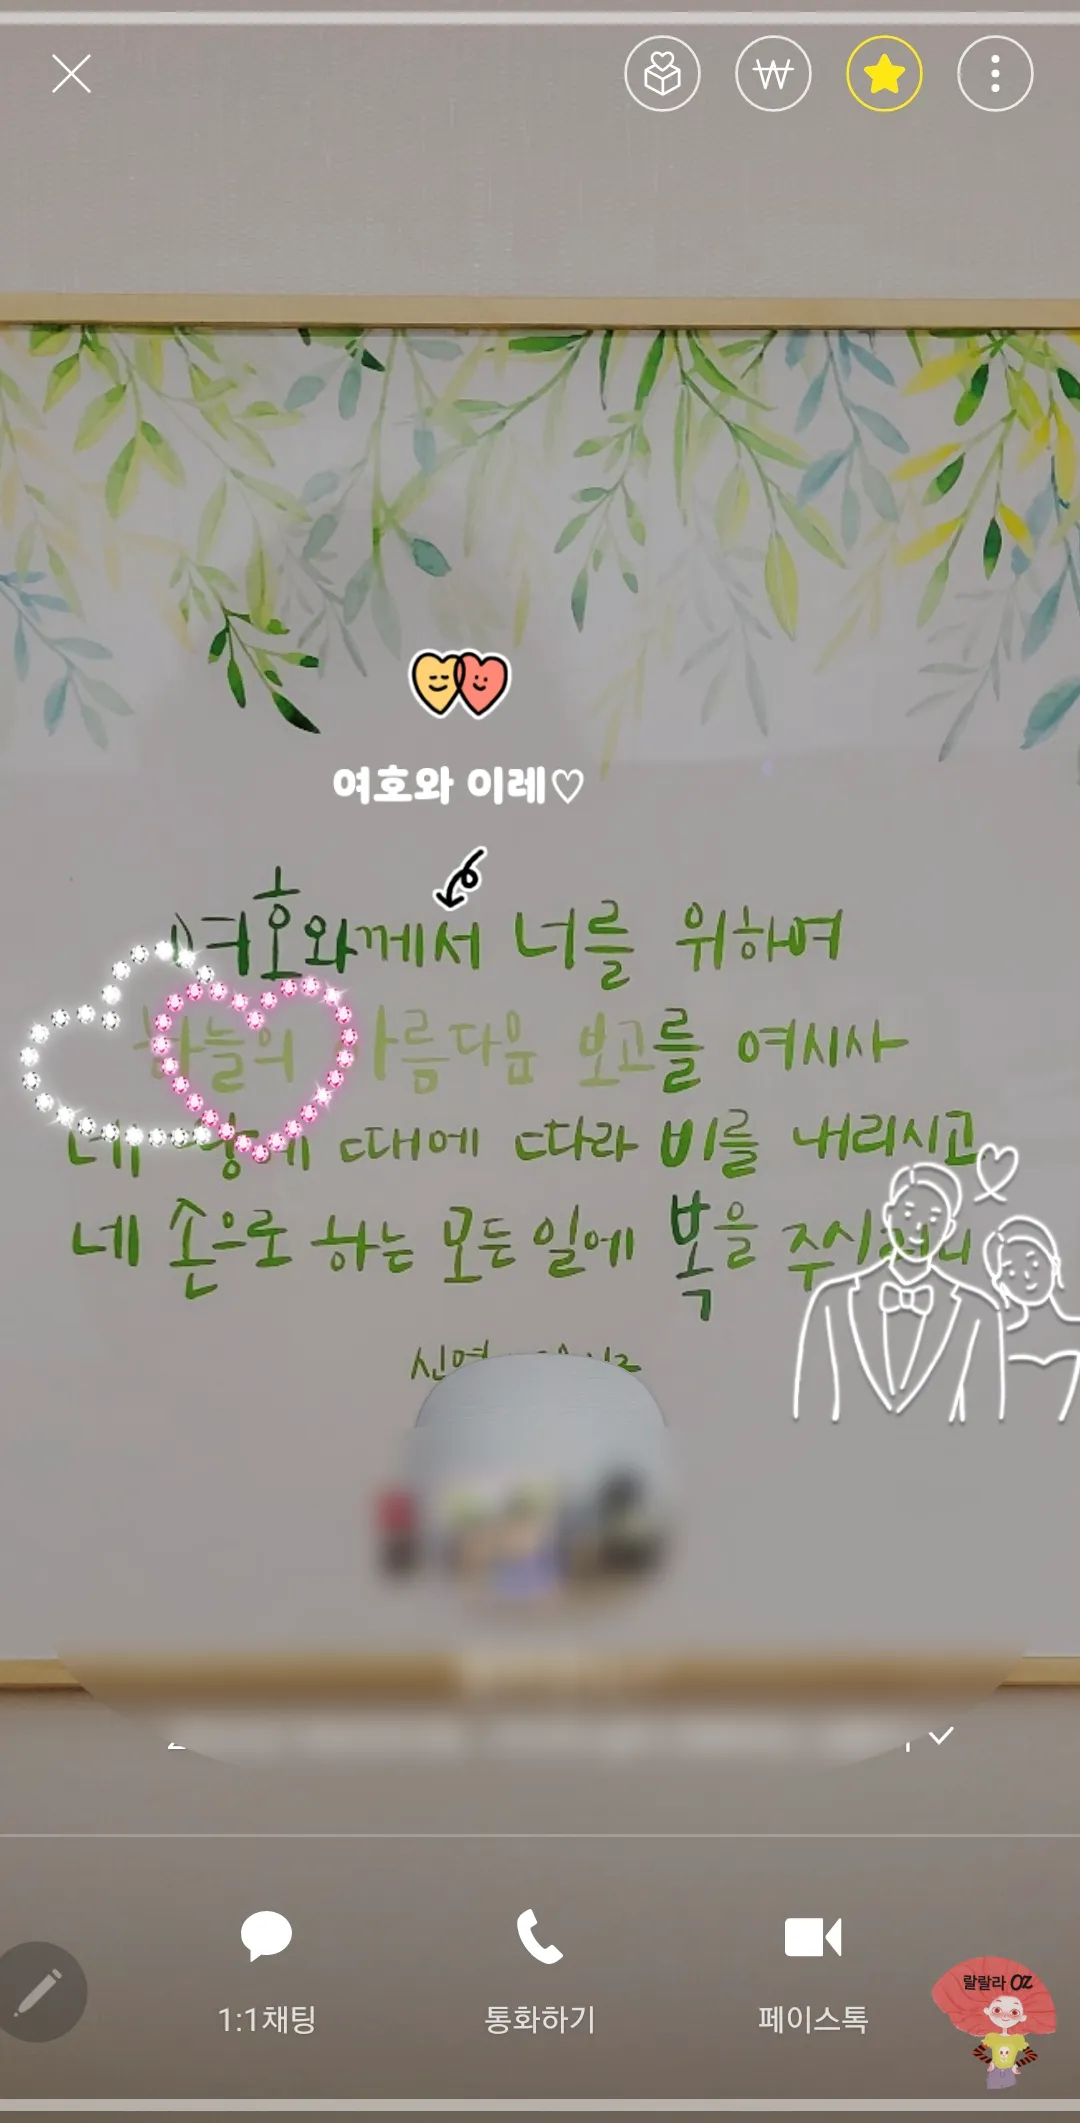 여호와 이레♡
여호와께서 너를 위하여
하늘의 아름다운 보고를 여시사
네 땅에 때에 따라 비를 내리시고
네 손으로 하는 모든 일에 복을 주시리니
1:1채팅 통화하기 페이스톡
랄랄라 OZ